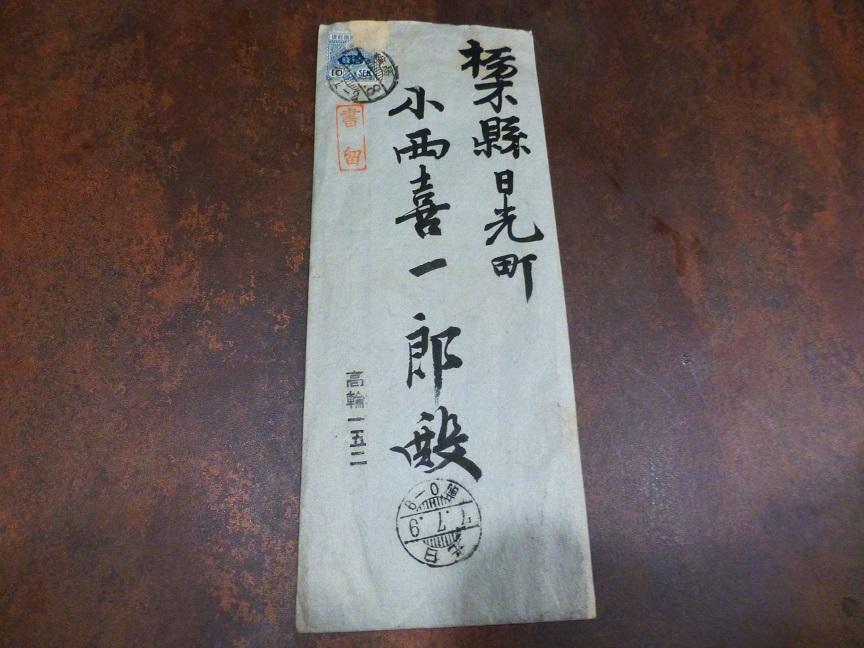 栃木縣日光町
小西喜一郎殿
10 SEN
書留
高輪一五二
7.7.9
日光